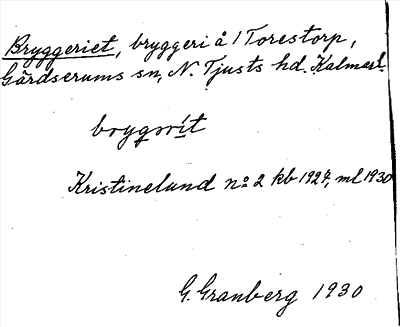 Bryggeriet, bryggeri å 1 Torestorp,
Gärdserums sn, N. Tjusts hd. Kalmar l.
bryggərit
Kristinelund nº 2 kb 1927, ml 1930
G. Granberg 1930